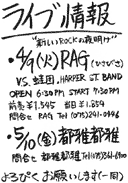 ライブ情報
"新しいROCKの夜明け"
4/7(火)RAG(むさびき)
VS.蛙団,HARPER ST BAND
OPEN 6:30PM START 7:30PM
前売¥1,545 当日¥1,854
問合せ RAG Tel (075)241-0446
5/10(金)都雅都雅
問合せ 都雅都雅 Tel(075)361-6900
よろぴくお願いします(一同)